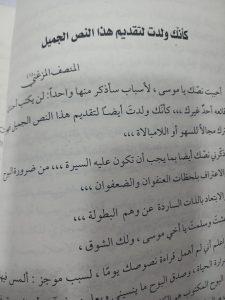 كأنّك ولدت لتقديم هذا النص الجميل
المنصف المزغني
أحببت نصّك يا موسى، لأسباب سأذكر منها واحداً: لن يكتب
غيرك ،،، كأنّك ولدتَ أيضاً لتقديم هذا النص الجميل
مجالاً للسهو أو اللامبالاة ،،،
نصّك أيضا بما يجب أن تكون عليه السيرة ،،، من ضرورة البوح
الاعتراف بلحظات العنفوان والضعفوان ،،،
والابتعاد باللذات الساردة عن وهم البطولة ،،،
وسلمتَ يا أخي موسى، ولك الشوق ،
أني لم أهمل قراءة نصوصك يومًا، لسبب موجز : ألمس فيها
الحياة، وصدق البوح